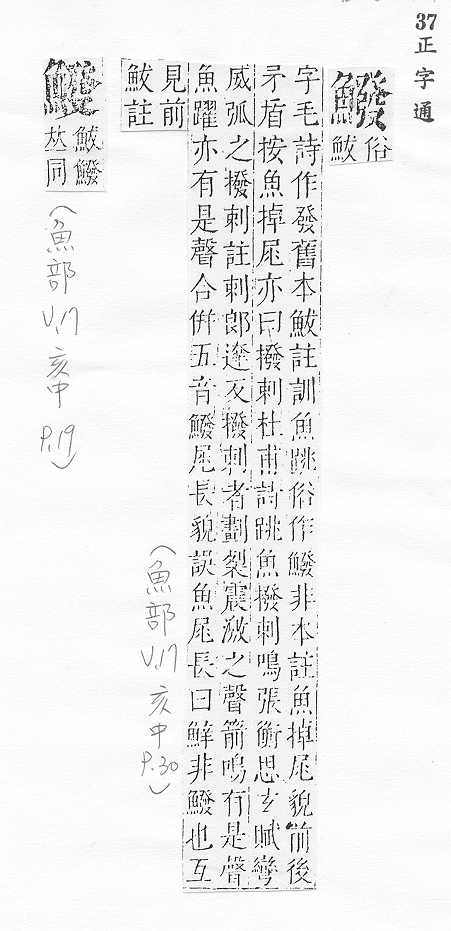 37 正字通
鱍
俗
鮁
字毛詩作發舊本鮁註訓魚跳俗作鱍非本註魚掉尾貌前後
矛盾按魚掉尾亦曰撥剌杜甫詩跳魚撥剌鳴張衡思玄賦彎
威弧之撥剌註剌郎達反撥剌者劃裂震激之聲箭鳴有是聲
魚躍亦有是聲合倂五音鱍尾長貌誤魚尾長曰鮮非鱍也互
見前
鮁註
(魚部 V.17 亥中 P.30)
鮁鱍
𠀤同
(魚部 V.17 亥中 P.19)